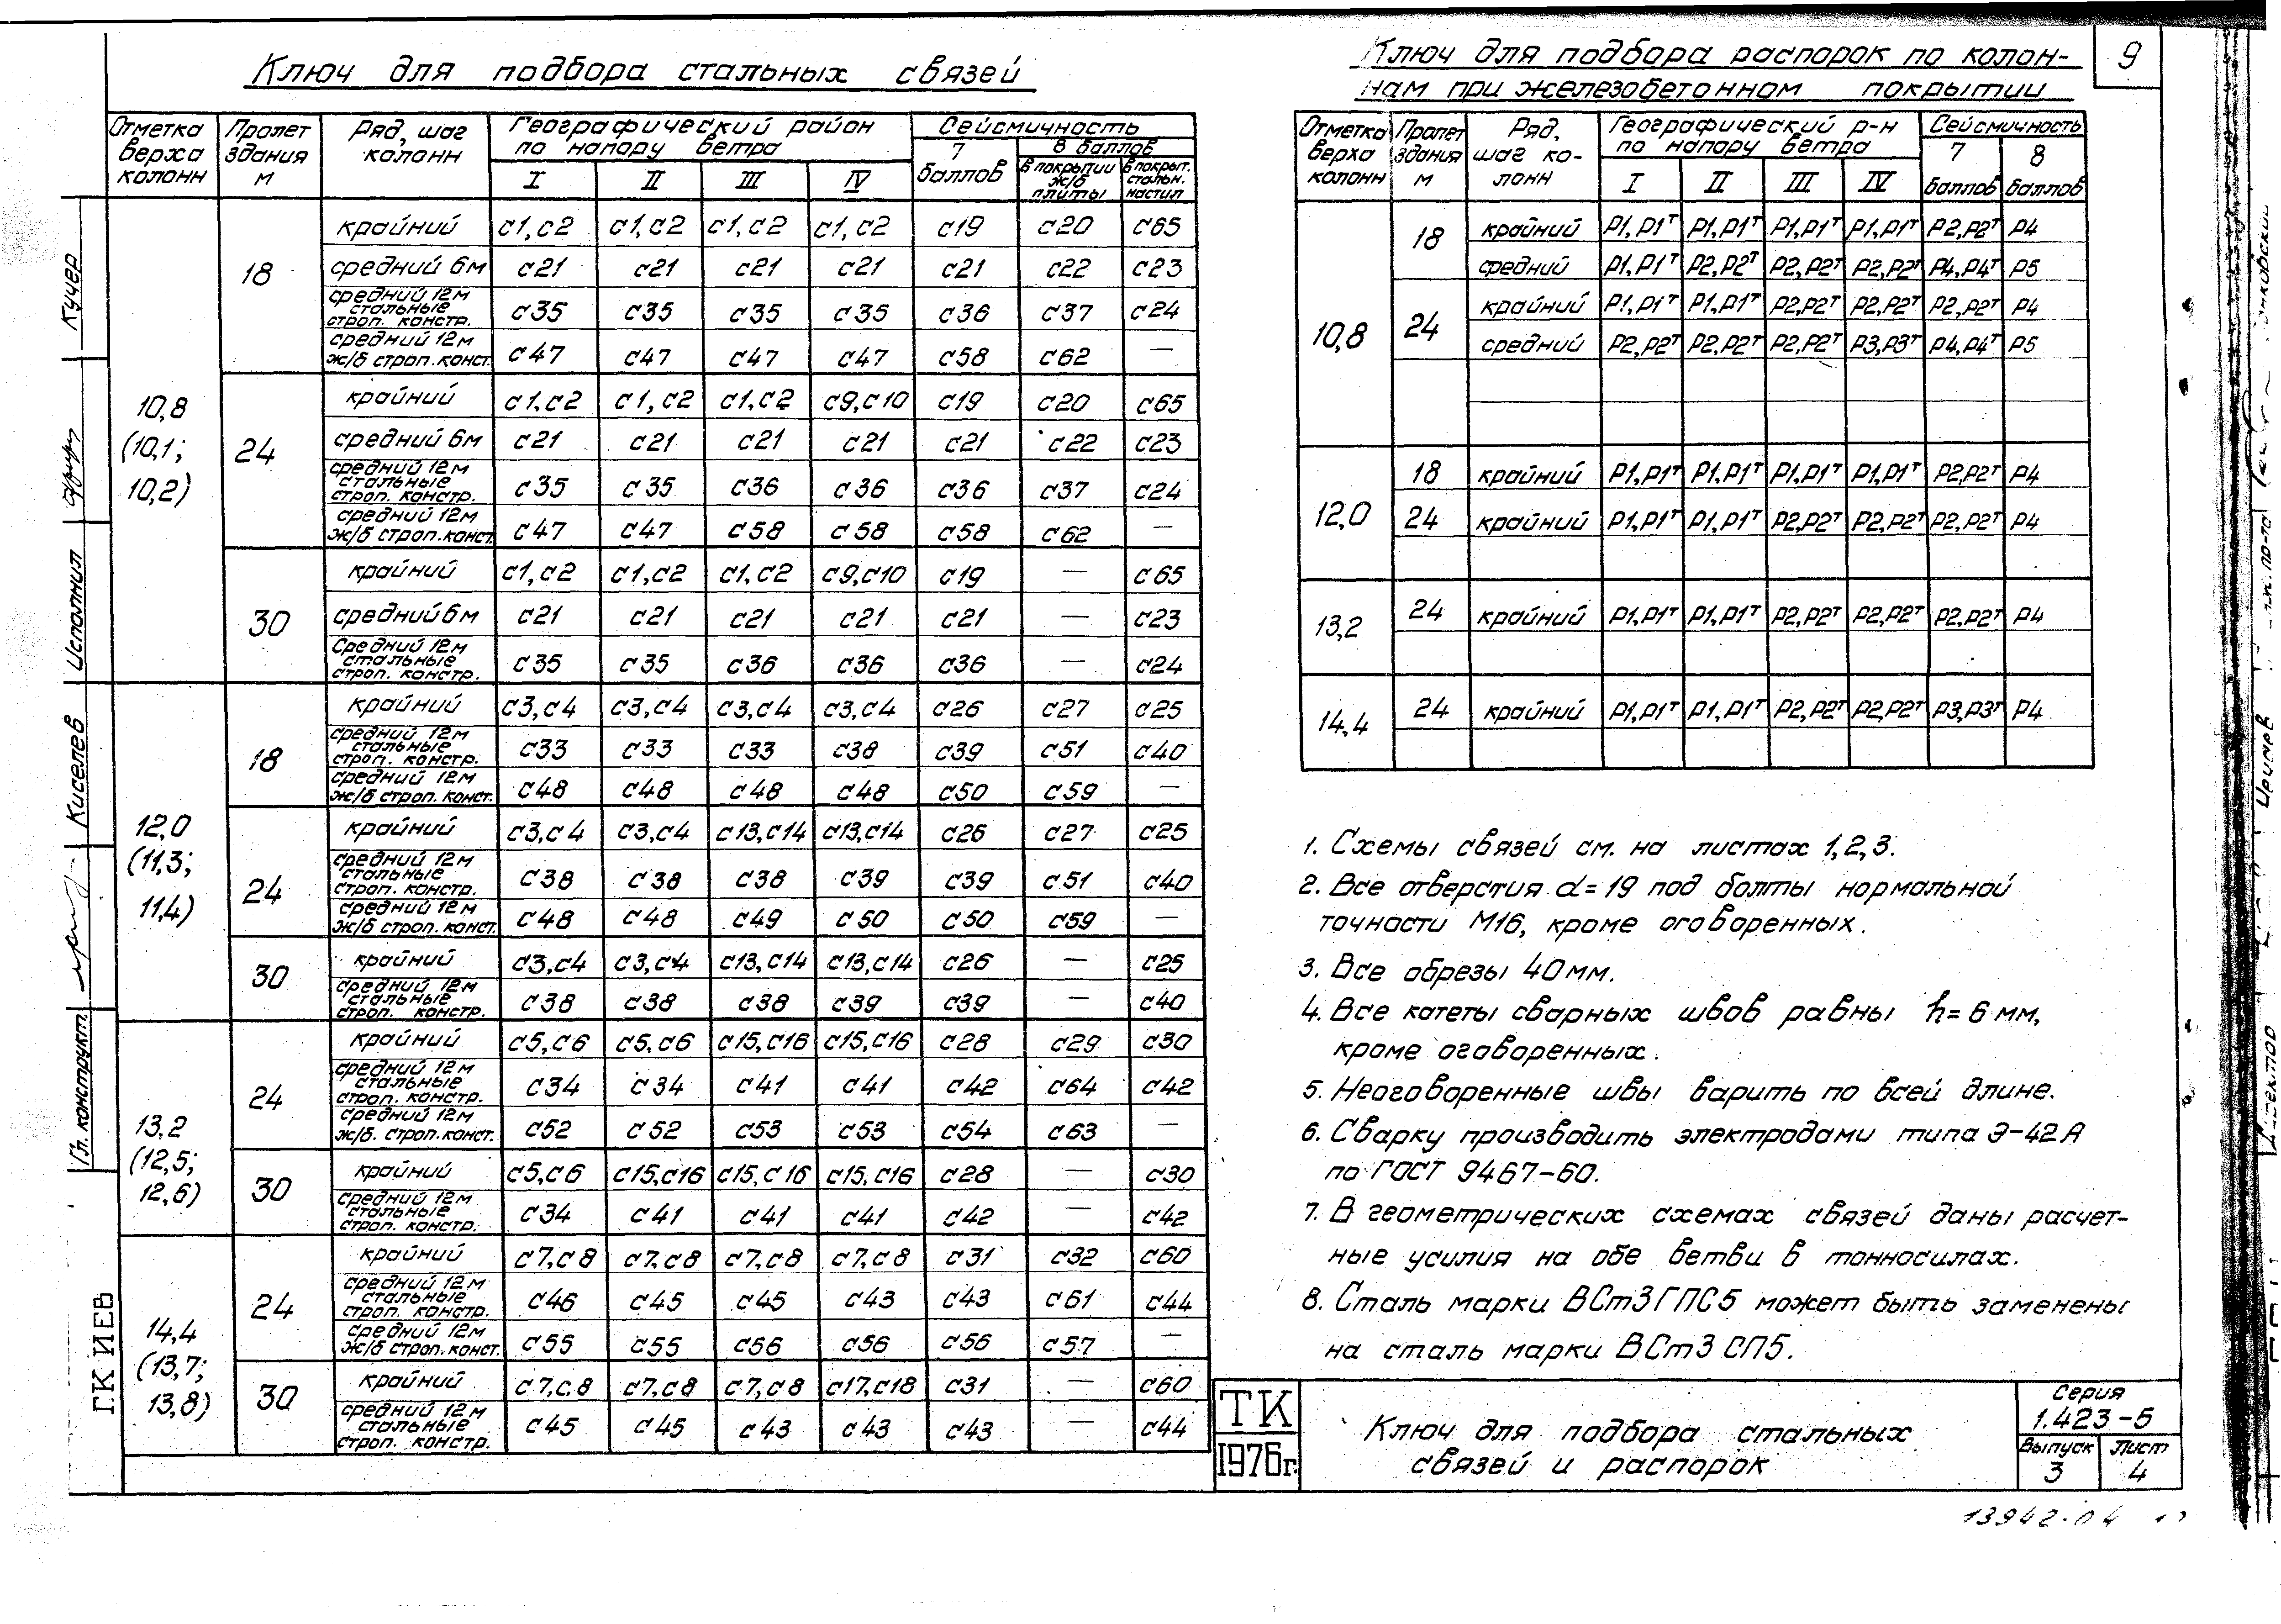 9
Ключ для подбора стальных связей
Отметка верха колонн | Пролет здания м | Ряд, шаг колонн | Географический район по напору ветра | Сейсмичность
I | II | III | IV | 7 баллов | 8 баллов
в покрытии ж/б плиты | в покрыт. стальн. настил
10,8 (10,1; 10,2)
18
крайний | с1, с2 | с1, с2 | с1, с2 | с1, с2 | с19 | с20 | с65
средний 6м | с21 | с21 | с21 | с21 | с21 | с22 | с23
средний 12м стальные строп. констр. | с35 | с35 | с35 | с35 | с36 | с37 | с24
средний 12м ж/б строп. конст. | с47 | с47 | с47 | с47 | с58 | с62 | —
24
крайний | с1, с2 | с1, с2 | с1, с2 | с9, с10 | с19 | с20 | с65
средний 6м | с21 | с21 | с21 | с21 | с21 | с22 | с23
средний 12м стальные строп. констр. | с35 | с35 | с36 | с36 | с36 | с37 | с24
средний 12м ж/б строп. конст. | с47 | с47 | с58 | с58 | с58 | с62 | —
30
крайний | с1, с2 | с1, с2 | с1, с2 | с9, с10 | с19 | — | с65
средний 6м | с21 | с21 | с21 | с21 | с21 | — | с23
Средний 12м стальные строп. констр. | с35 | с35 | с36 | с36 | с36 | — | с24
12,0 (11,3; 11,4)
18
крайний | с3, с4 | с3, с4 | с3, с4 | с3, с4 | с26 | с27 | с25
средний 12м стальные строп. констр. | с33 | с33 | с33 | с38 | с39 | с51 | с40
средний 12м ж/б строп. конст. | с48 | с48 | с48 | с48 | с50 | с59 | —
24
крайний | с3, с4 | с3, с4 | с13, с14 | с13, с14 | с26 | с27 | с25
средний 12м стальные строп. констр. | с38 | с38 | с38 | с39 | с39 | с51 | с40
средний 12м ж/б строп. конст. | с48 | с48 | с49 | с50 | с50 | с59 | —
30
крайний | с3, с4 | с3, с4 | с13, с14 | с13, с14 | с26 | — | с25
средний 12м стальные строп. констр. | с38 | с38 | с38 | с39 | с39 | — | с40
13,2 (12,5; 12,6)
24
крайний | с5, с6 | с5, с6 | с15, с16 | с15, с16 | с28 | с29 | с30
средний 12м стальные строп. констр. | с34 | с34 | с41 | с41 | с42 | с64 | с42
средний 12м ж/б. строп. конст. | с52 | с52 | с53 | с53 | с54 | с63 | —
30
крайний | с5, с6 | с15, с16 | с15, с16 | с15, с16 | с28 | — | с30
средний 12м стальные строп. констр. | с34 | с41 | с41 | с41 | с42 | — | с42
14,4 (13,7; 13,8)
24
крайний | с7, с8 | с7, с8 | с7, с8 | с7, с8 | с31 | с32 | с60
средний 12м стальные строп. констр. | с46 | с45 | с45 | с43 | с43 | с61 | с44
средний 12м ж/б строп. конст. | с55 | с55 | с56 | с56 | с56 | с57 | —
30
крайний | с7, с8 | с7, с8 | с7, с8 | с17, с18 | с31 | — | с60
средний 12м стальные строп. констр. | с45 | с45 | с43 | с43 | с43 | — | с44
Ключ для подбора распорок по колон-
нам при железобетонном покрытии
Отметка верха колонн | Пролет здания м | Ряд, шаг ко-лонн | Географический р-н по напору ветра | Сейсмичность
I | II | III | IV | 7 баллов | 8 баллов
10,8
18
крайний | Р1, Р1т | Р1, Р1т | Р1, Р1т | Р1, Р1т | Р2, Р2т | Р4
средний | Р1, Р1т | Р2, Р2т | Р2, Р2т | Р2, Р2т | Р4, Р4т | Р5
24
крайний | Р1, Р1т | Р1, Р1т | Р2, Р2т | Р2, Р2т | Р2, Р2т | Р4
средний | Р2, Р2т | Р2, Р2т | Р2, Р2т | Р3, Р3т | Р4, Р4т | Р5
12,0
18 | крайний | Р1, Р1т | Р1, Р1т | Р1, Р1т | Р1, Р1т | Р2, Р2т | Р4
24 | крайний | Р1, Р1т | Р1, Р1т | Р2, Р2т | Р2, Р2т | Р2, Р2т | Р4
13,2
24 | крайний | Р1, Р1т | Р1, Р1т | Р2, Р2т | Р2, Р2т | Р2, Р2т | Р4
14,4
24 | крайний | Р1, Р1т | Р1, Р1т | Р2, Р2т | Р2, Р2т | Р3, Р3т | Р4
1. Схемы связей см. на листах 1, 2, 3.
2. Все отверстия d=19 под болты нормальной
точности М16, кроме оговоренных.
3. Все обрезы 40 мм.
4. Все катеты сварных швов равны h=6 мм,
кроме оговоренных.
5. Неоговоренные швы варить по всей длине.
6. Сварку производить электродами типа Э-42А
по ГОСТ 9467-60.
7. В геометрических схемах связей даны расчет-
ные усилия на обе ветви в тонносилах.
8. Сталь марки ВСт3ГПС5 может быть заменены
на сталь марки ВСт3СП5.
ТК
1976г.
Ключ для подбора стальных
связей и распорок
Серия
1.423-5
Выпуск | Лист
3 | 4
13942-04
Кучер
Исполнил
Киселев
Гл. конструкт.
Г.КИЕВ